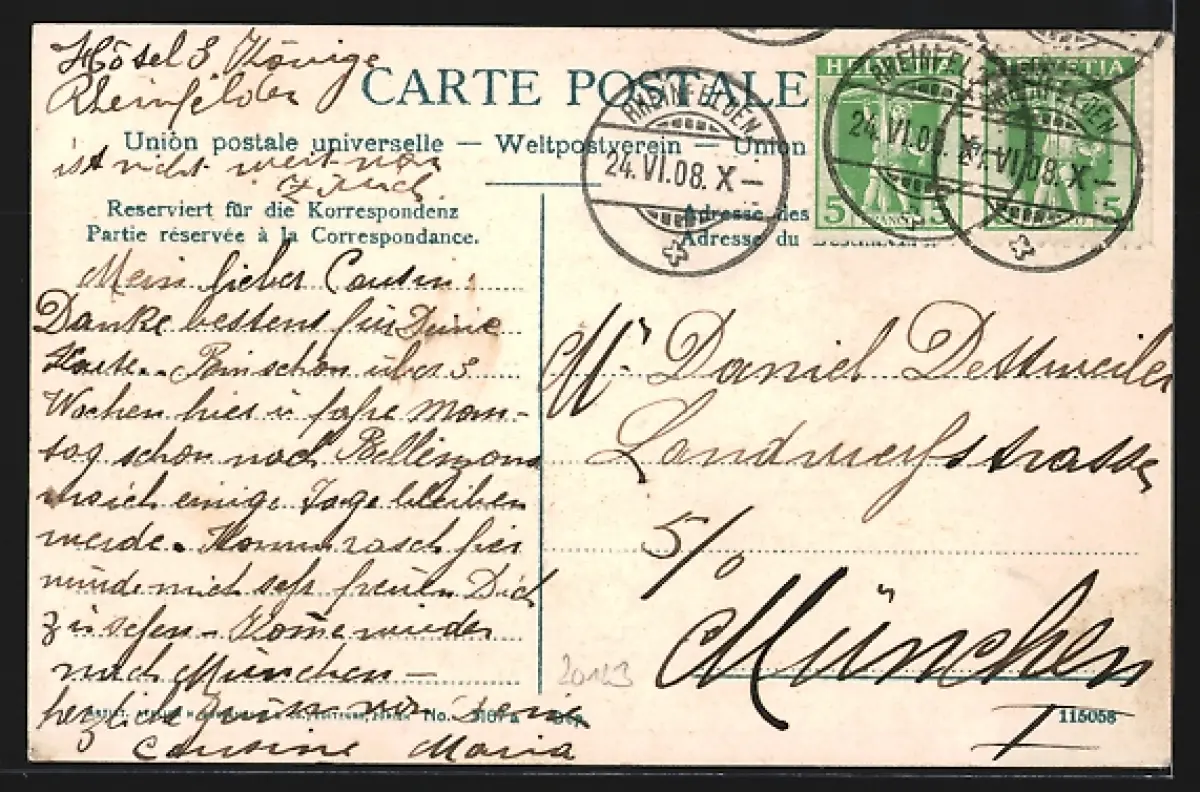 Hôtel 3 Könige
Rheinfelden
ist nicht weit von
Zürich
CARTE POSTALE
Union postale universelle — Weltpostverein — Union
Reserviert für die Korrespondenz
Partie réservée à la Correspondance.
Adresse des
Adresse du
Mein lieber Cousin:
Danke bestens für Deine
Karte. Bin schon über 3
Wochen hier u fahre Mon-
tag schon nach Bellinzona
wo ich einige Tage bleiben
werde. Komm rasch hier
würde mich sehr freuen Dich
zu sehen – Kome wieder
nach München —
herzliche Grüsse von Deine
Cousine Maria
HELVETIA
HELVETIA
5
5
5
RHEINFELDEN
24.VI.08.X–
RHEINFELDEN
24.VI.08.
RHEINFELDEN
24.VI.08.X–
Mr Daniel Dettweiler
Landwehrstrasse
5/0
München
I
20123
No.
115058